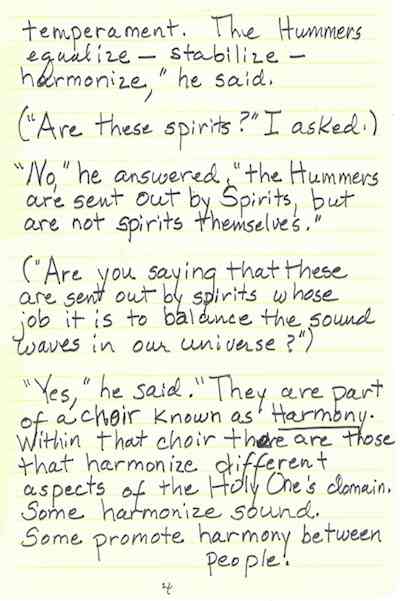 temperament. The Hummers
equalize – stabilize –
harmonize," he said.
("Are these spirits?" I asked.)
"No," he answered, "the Hummers
are sent out by Spirits, but
are not spirits themselves."
("Are you saying that these
are sent out by spirits whose
job it is to balance the sound
waves in our universe?")
"Yes," he said. "They are part
of a choir known as Harmony.
Within that choir there are those
that harmonize different
aspects of the Holy One's domain.
Some harmonize sound.
Some promote harmony between
people.
4